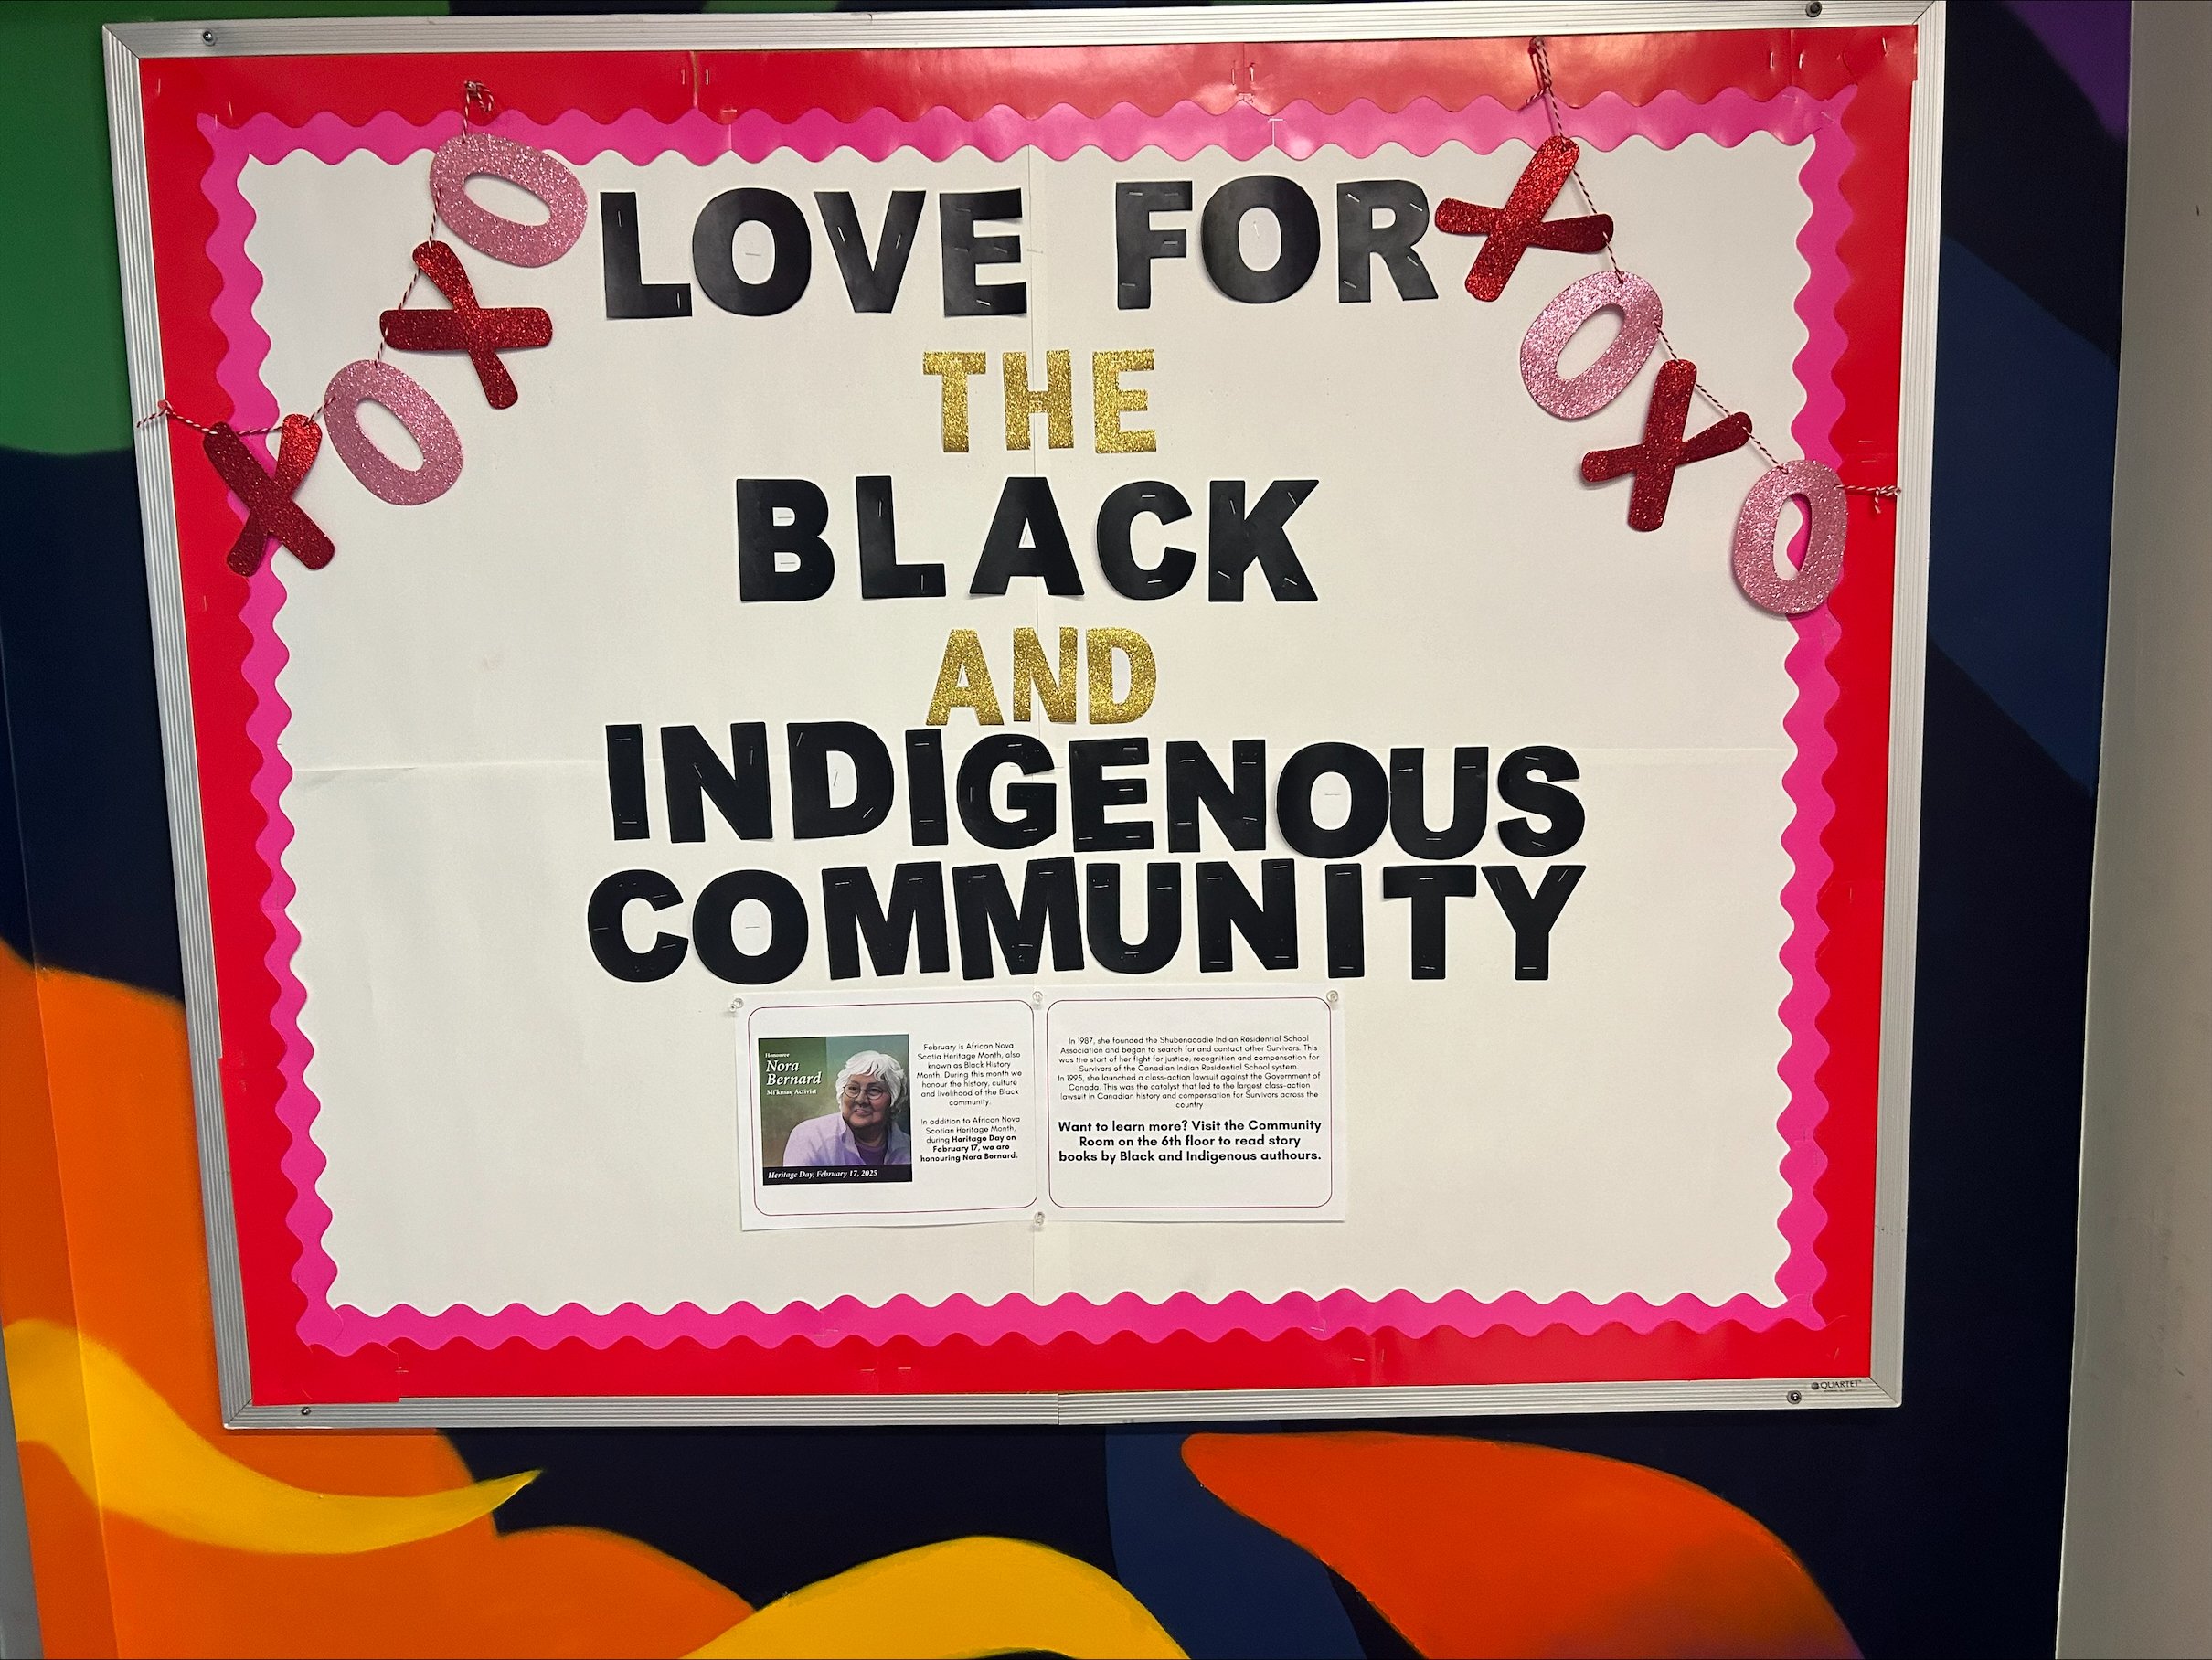 LOVE FOR
THE
BLACK
AND
INDIGENOUS
COMMUNITY
OXOX
XOXO
Honouree
Nora
Bernard
Mi'kmaq Activist
Heritage Day, February 17, 2025
February is African Nova
Scotia Heritage Month, also
known as Black History
Month. During this month we
honour the history, culture
and livelihood of the Black
community.
In addition to African Nova
Scotian Heritage Month,
during Heritage Day on
February 17, we are
honouring Nora Bernard.
In 1987, she founded the Shubenacadie Indian Residential School
Association and began to search for and contact other Survivors. This
was the start of her fight for justice, recognition and compensation for
Survivors of the Canadian Indian Residential School system.
In 1995, she launched a class-action lawsuit against the Government of
Canada. This was the catalyst that led to the largest class-action
lawsuit in Canadian history and compensation for Survivors across the
country
Want to learn more? Visit the Community
Room on the 6th floor to read story
books by Black and Indigenous authours.
QUARTET